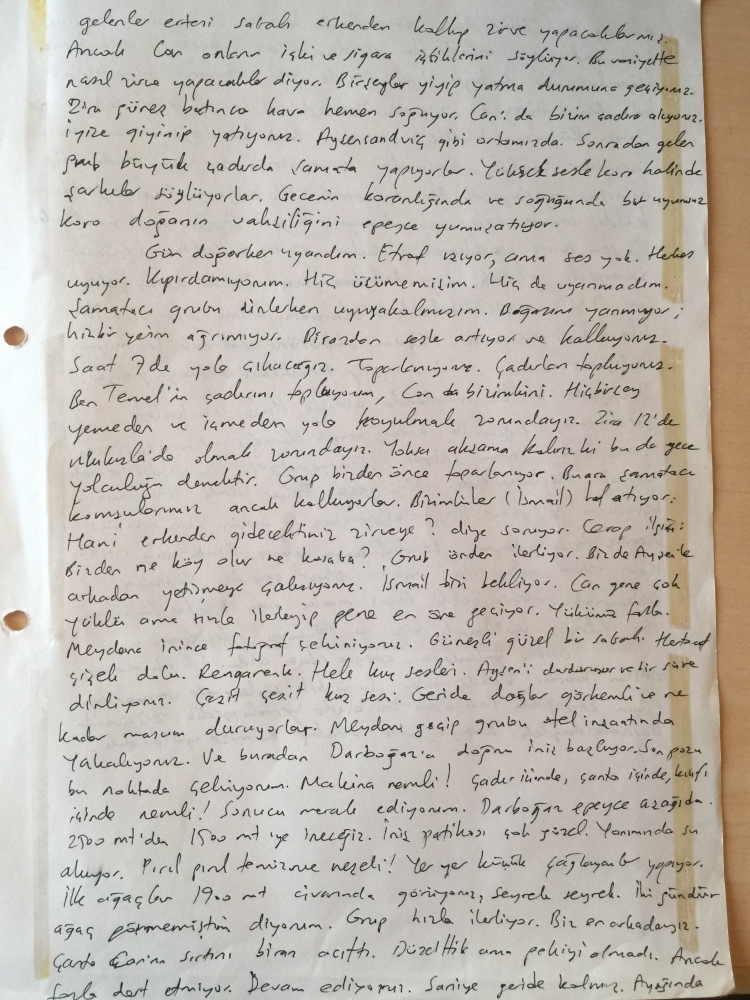 gelenler ertesi sabah erkenden kalkıp zirve yapacaklarmış.
Ancak Can onların içki ve sigara içtiklerini söylüyor. Bu vaziyette
nasıl zirve yapacaklar diyor. Birşeyler yiyip yatma durumuna geçiyoruz.
Zira güneş batınca hava hemen soğuyor. Can'ı da bizim çadıra alıyoruz.
iyice giyinip yatıyoruz. Ayşen sandviç gibi ortamızda. Sonradan gelen
grub büyük çadırda şamata yapıyorlar. Yüksek sesle koro halinde
şarkılar söylüyorlar. Gecenin karanlığında ve soğuğunda bu uyumsuz
koro doğanın vahşiliğini epeyce yumuşatıyor.
Gün doğarken uyandım. Etraf ışıyor, ama ses yok. Herkes
uyuyor. Kıpırdamıyorum. Hiç üşümemişim. Hiç de uyanmadım.
Şamatacı grubu dinlerken uyuyakalmışım. Boğazım yanmıyor;
hiçbir yerim ağrımıyor. Birazdan sesler artıyor ve kalkıyoruz.
Saat 7de yola çıkacağız. Toparlanıyoruz. Çadırları topluyoruz.
Ben Temel'in çadırını toplıyorum, Can da bizimkini. Hiçbirşey
yemeden ve içmeden yola koyulmak zorundayız. Zira 12'de
Ulukışla'da olmak zorundayız. Yoksa akşama kalırız ki bu da gece
yolculuğu demektir. Grup bizden önce toparlanıyor. Bu ara şamatacı
komşularımız ancak kalkıyorlar. Bizimkiler (İsmail) laf atıyor:
Hani erkenden gidecektiniz zirveye? diye soruyor. Cevap ilginç:
Bizden ne köy olur ne kasaba? Grub önden ilerliyor. Biz de Ayşenle
arkadan yetişmeye çalışıyoruz. İsmail bizi bekliyor. Can gene çok
yüklü ama hızla ilerleyip gene en öne geçiyor. Yükümüz fazla.
Meydana inince fotoğraf çekiniyoruz. Güneşli güzel bir sabah. Her taraf
çiçek dolu. Rengarenk. Hele kuş sesleri. Ayşen'i durduruyor ve bir süre
dinliyoruz. Çeşit çeşit kuş sesi. Geride dağlar görkemli ve ne
kadar masum duruyorlar. Meydanı geçip grubu otel inşaatında
yakalıyoruz. Ve buradan Darboğaz'a doğru iniş başlıyor. Son pozu
bu noktada çekiyorum. Makina nemli! Çadır içinde, çanta içinde, kılıfı
içinde nemli! Sonucu merak ediyorum. Darboğaz epeyce aşağıda.
2500 mt'den 1500 mt'ye ineceğiz. İniş patikası çok güzel. Yanımızda su
akıyor. Pırıl pırıl temiz ve neşeli! Yer yer küçük çağlayanlar yapıyor.
İlk ağaçları 1900 mt civarında görüyoruz, seyrek seyrek. İki gündür
ağaç görmemiştim diyorum. Grup hızla ilerliyor. Biz en arkadayız.
Çanta Can'ın sırtını biraz acıttı. Düzelttik ama pekiyi olmadı. Ancak
fazla dert etmiyor. Devam ediyoruz. Saniye geride kalmış. Ayağında